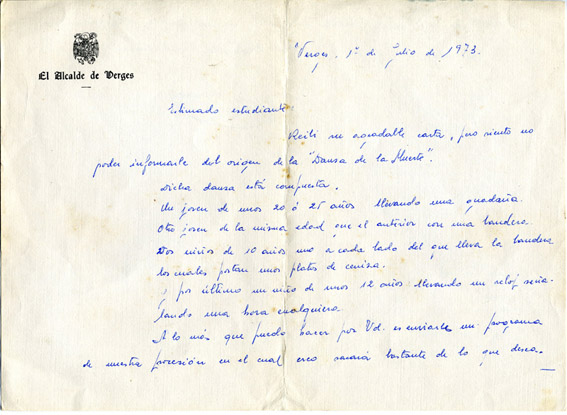 El Alcalde de Verges
Verges, 1º de Julio de 1973.
Estimado estudiante.
Recibi su agradable carta, pero siento no
poder informarle del origen de la "Dansa de la Muerte".
Dicha dansa está compuesta.
Un joven de unos 20 ó 25 años llevando una guadaña.
Otro joven de la misma edad que el anterior con una bandera
Dos niños de 10 años uno a cada lado del que lleva la bandera
los cuales portan unos platos de ceniza.
y por último un niño de unos 12 años llevando un reloj seña-
lando una hora cualquiera.
A lo más que puedo hacer por Vd. es enviarle un programa
de nuestra procesión en el cual creo sacará bastante de lo que desea.